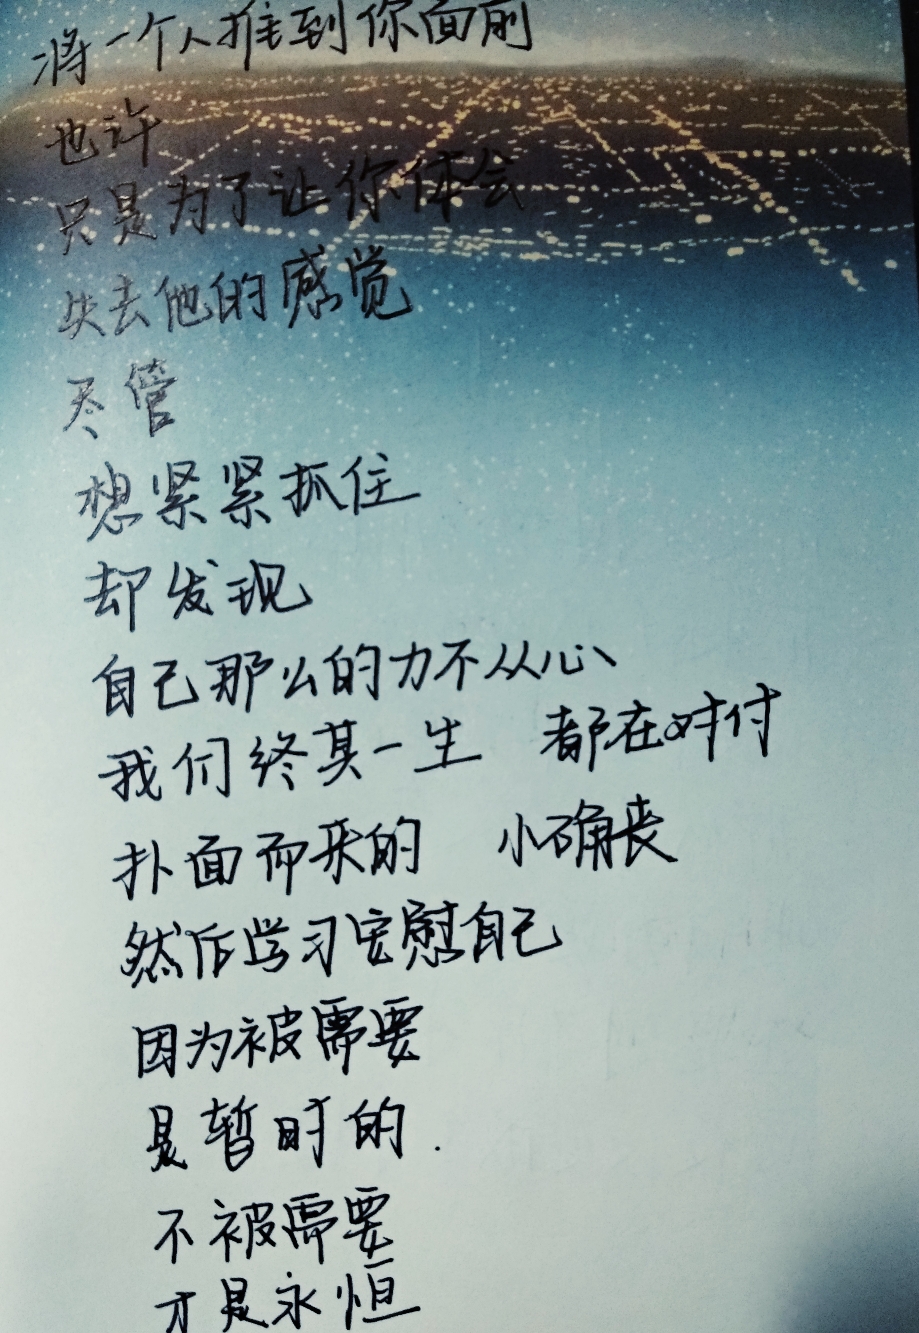 将一个人推到你面前
也许
只是为了让你体会
失去他的感觉
尽管
想紧紧抓住
却发现
自己那么的力不从心
我们终其一生 都在对付
扑面而来的 小确丧
然后学习安慰自己
因为被需要
是暂时的.
不被需要
才是永恒